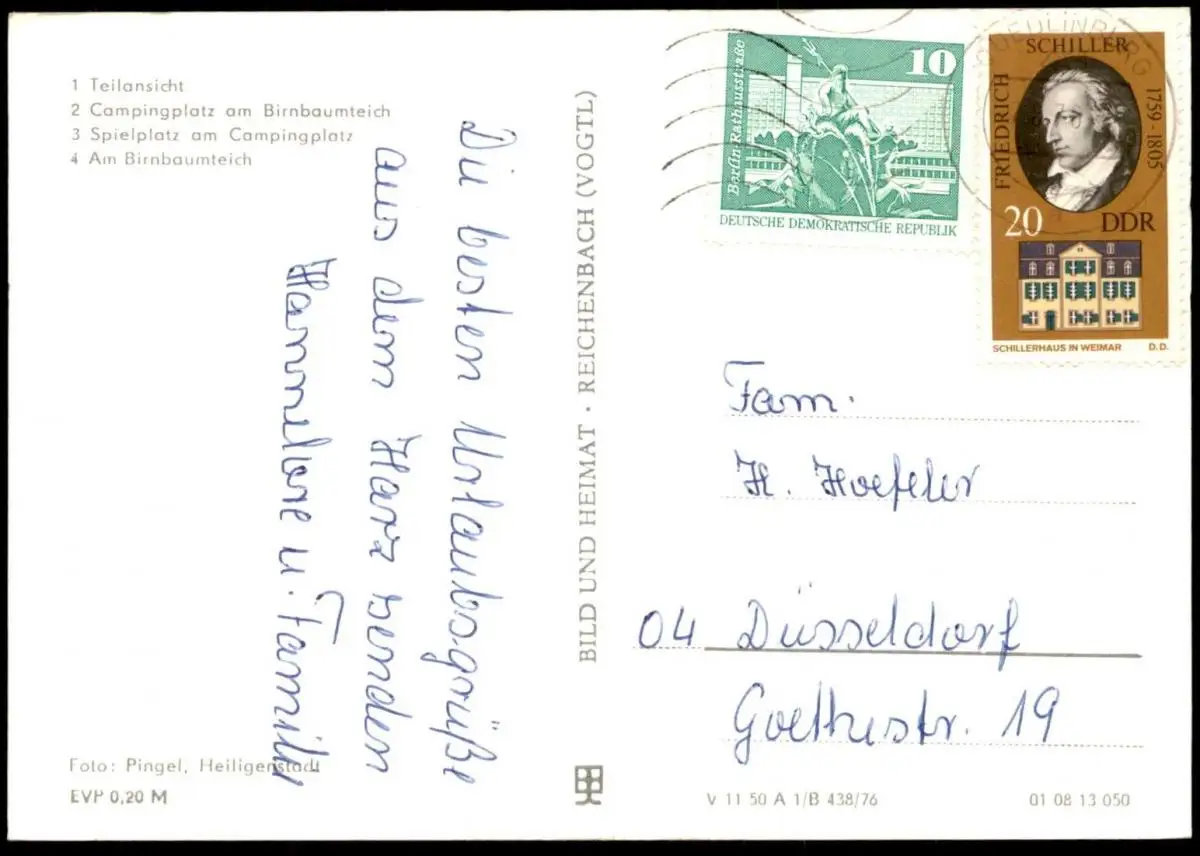 1 Teilansicht
2 Campingplatz am Birnbaumteich
3 Spielplatz am Campingplatz
4 Am Birnbaumteich
Die besten Urlaubsgrüße
aus dem Harz senden
Hannelore u. Familie
Foto: Pingel, Heiligenstadt
EVP 0,20 M
BILD UND HEIMAT · REICHENBACH (VOGTL)
Berlin-Rathausstraße
10
DEUTSCHE DEMOKRATISCHE REPUBLIK
QUEDLINBURG
FRIEDRICH
SCHILLER
1759-1805
20 DDR
SCHILLERHAUS IN WEIMAR D.D.
Fam.
H. Hoefeler
04 Düsseldorf
Goethestr. 19
V 11 50 A 1/B 438/76
01 08 13 050